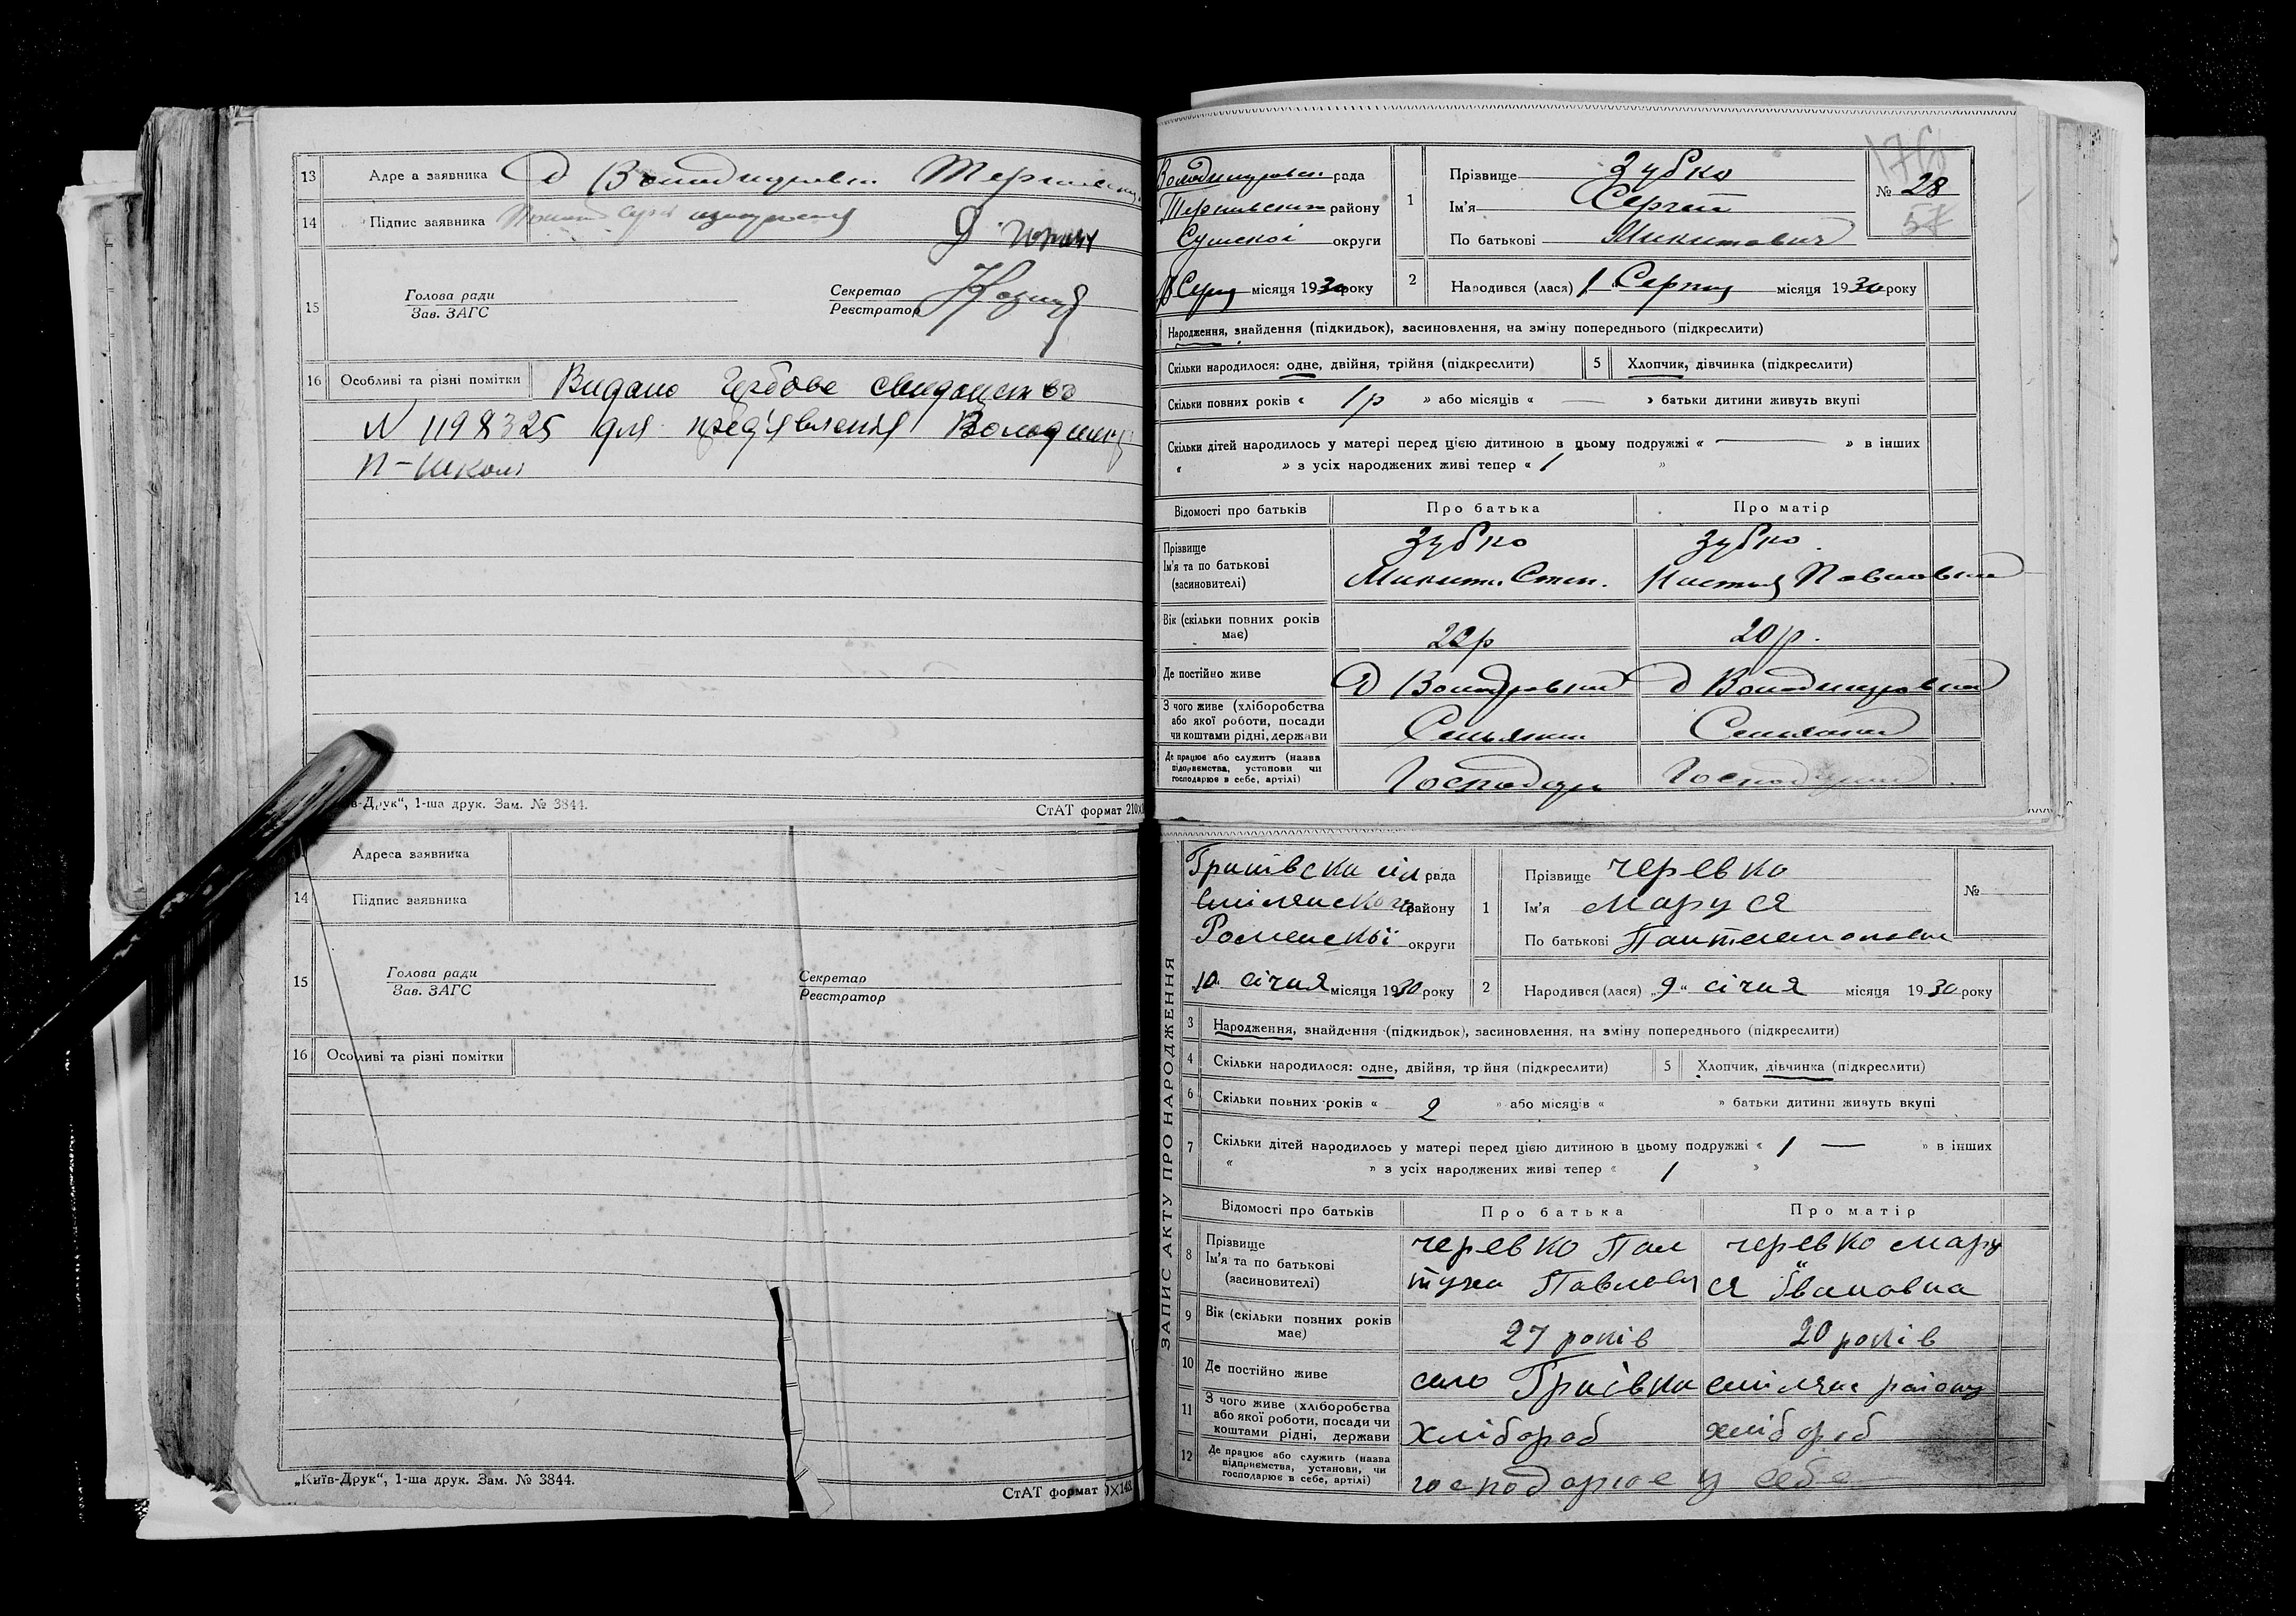 13 Адре а заявника Д
14 Підпис заявника
15 Голова ради
Зав. ЗАГС
Секретар
Реєстратор
16 Особливі та різні помітки Видано
N 1198325 для пред'явлення
п-школі
в-Друк“, 1-ша друк. Зам. № 3844.
СтАТ формат 210X
Адреса заявника
14 Підпис заявника
15 Голова ради
Зав. ЗАГС
Секретар
Реєстратор
16 Особливі та різні помітки
„Київ-Друк“, 1-ша друк. Зам. № 3844.
СтАТ формат
рада
району
Сумскої округи
місяця 1930 року
1 Прізвище Зубко
Ім'я Сергей
По батькові Микитович
№ 28
2 Народився (лася) 1 Серпня місяця 1930 року
Народження, знайдення (підкидьок), засиновлення, на зміну попереднього (підкреслити)
Скільки народилося: одне, двійня, трійня (підкреслити) 5 Хлопчик, дівчинка (підкреслити)
Скільки повних років « 1р » або місяців « — » батьки дитини живуть вкупі
Скільки дітей народилось у матері перед цією дитиною в цьому подружжі « — » в інших
« » з усіх народжених живі тепер « 1 »
Відомості про батьків Про батька Про матір
Прізвище Зубко Зубко
Ім'я та по батькові
(засиновителі)
Вік (скільки повних років
має) 22р 20р.
Де постійно живе Д Д Володимуровка
З чого живе (хліборобства
або якої роботи, посади
чи коштами рідні, держави
Де працює або служить (назва
підприємства, установи чи
господарює в себе, артілі)
Господар
ЗАПИС АКТУ ПРО НАРОДЖЕННЯ
рада
району
Роменскої округи
10 січня місяця 1930 року
1 Прізвище Черевко
Ім'я Маруся
По батькові
№
2 Народився (лася) „9“ січня місяця 1930 року
3 Народження, знайдення (підкидьок), засиновлення, на зміну попереднього (підкреслити)
4 Скільки народилося: одне, двійня, трійня (підкреслити) 5 Хлопчик, дівчинка (підкреслити)
6 Скільки повних років « 2 » або місяців « » батьки дитини живуть вкупі
7 Скільки дітей народилось у матері перед цією дитиною в цьому подружжі « 1 — » в інших
« » з усіх народжених живі тепер « 1 »
Відомості про батьків Про батька Про матір
8 Прізвище
Ім'я та по батькові
(засиновителі)
черевко черевко мару
ся Івановна
9 Вік (скільки повних років
має) 27 років 20 років
10 Де постійно живе село району
11 З чого живе (хліборобства
або якої роботи, посади чи
коштами рідні, держави
хлібороб хлібороб
12 Де працює або служить (назва
підприємства, установи, чи
господарює в себе, артілі)
господарює у себе